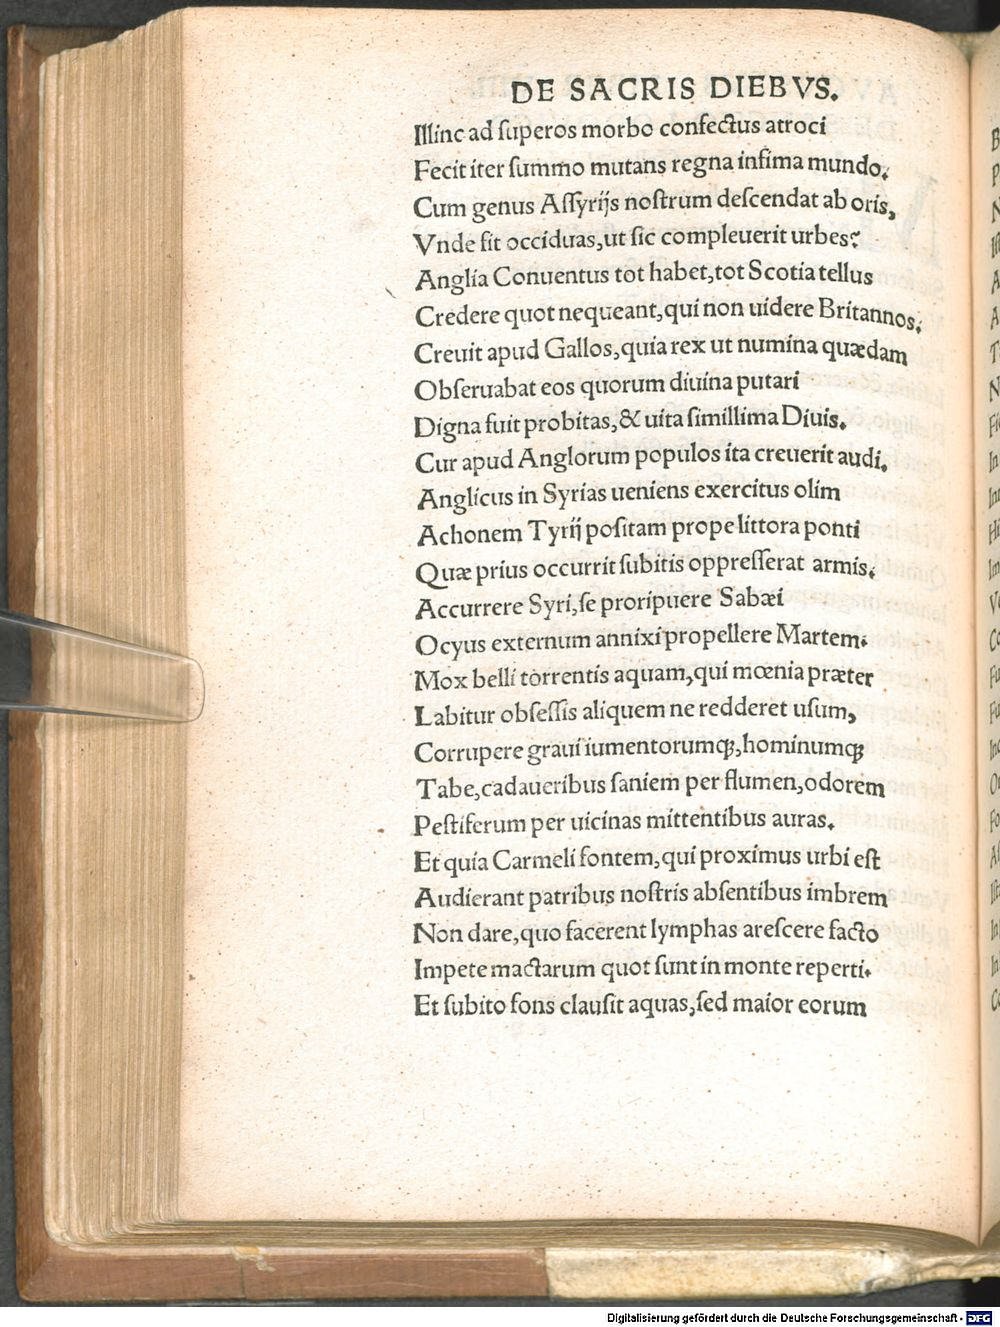 DE SACRIS DIEBVS.
Illinc ad ſuperos morbo confectus atroci
Fecit iter ſummo mutans regna infima mundo.
Cum genus Aſſyrijs noſtrum deſcendat ab oris,
Vnde ſit occiduas, ut ſic compleuerit urbes?
Anglia Conuentus tot habet, tot Scotia tellus
Credere quot nequeant, qui non uidere Britannos.
Creuit apud Gallos, quia rex ut numina quædam
Obſeruabat eos quorum diuina putari
Digna fuit probitas, & uita ſimillima Diuis.
Cur apud Anglorum populos ita creuerit audi.
Anglicus in Syrias ueniens exercitus olim
Achonem Tyrij poſitam prope littora ponti
Quæ prius occurrit ſubitis oppreſſerat armis.
Accurrere Syri, ſe proripuere Sabæi
Ocyus externum annixi propellere Martem.
Mox belli torrentis aquam, qui mœnia præter
Labitur obſeſſis aliquem ne redderet uſum,
Corrupere graui iumentorumqꝫ, hominumqꝫ
Tabe, cadaueribus ſaniem per flumen, odorem
Peſtiferum per uicinas mittentibus auras.
Et quia Carmeli fontem, qui proximus urbi eſt
Audierant patribus noſtris abſentibus imbrem
Non dare, quo facerent lymphas areſcere facto
Impete mactarum quot ſunt in monte reperti.
Et ſubito fons clauſit aquas, ſed maior eorum
Digitalisierung gefördert durch die Deutsche Forschungsgemeinschaft - DFG